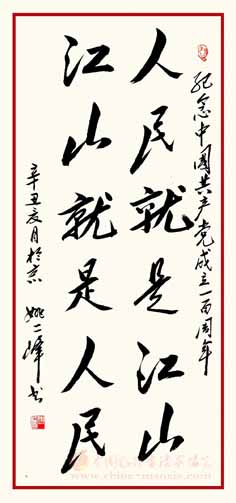 纪念中国共产党成立一百周年
人民就是江山
江山就是人民
辛丑夏月于京
姚二峰书